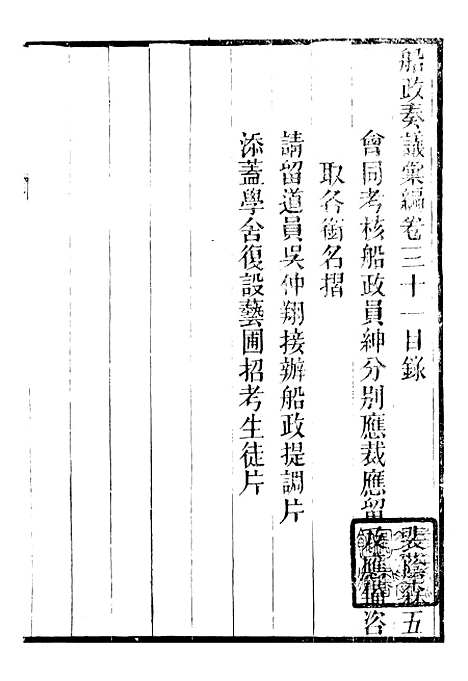 船政奏議彙編卷三十一目錄
裴蔭森五
會同考核船政員紳分別應裁應留及應備咨
取各銜名摺
請留道員吳仲翔接辦船政提調片
添蓋學舍復設藝圃招考生徒片